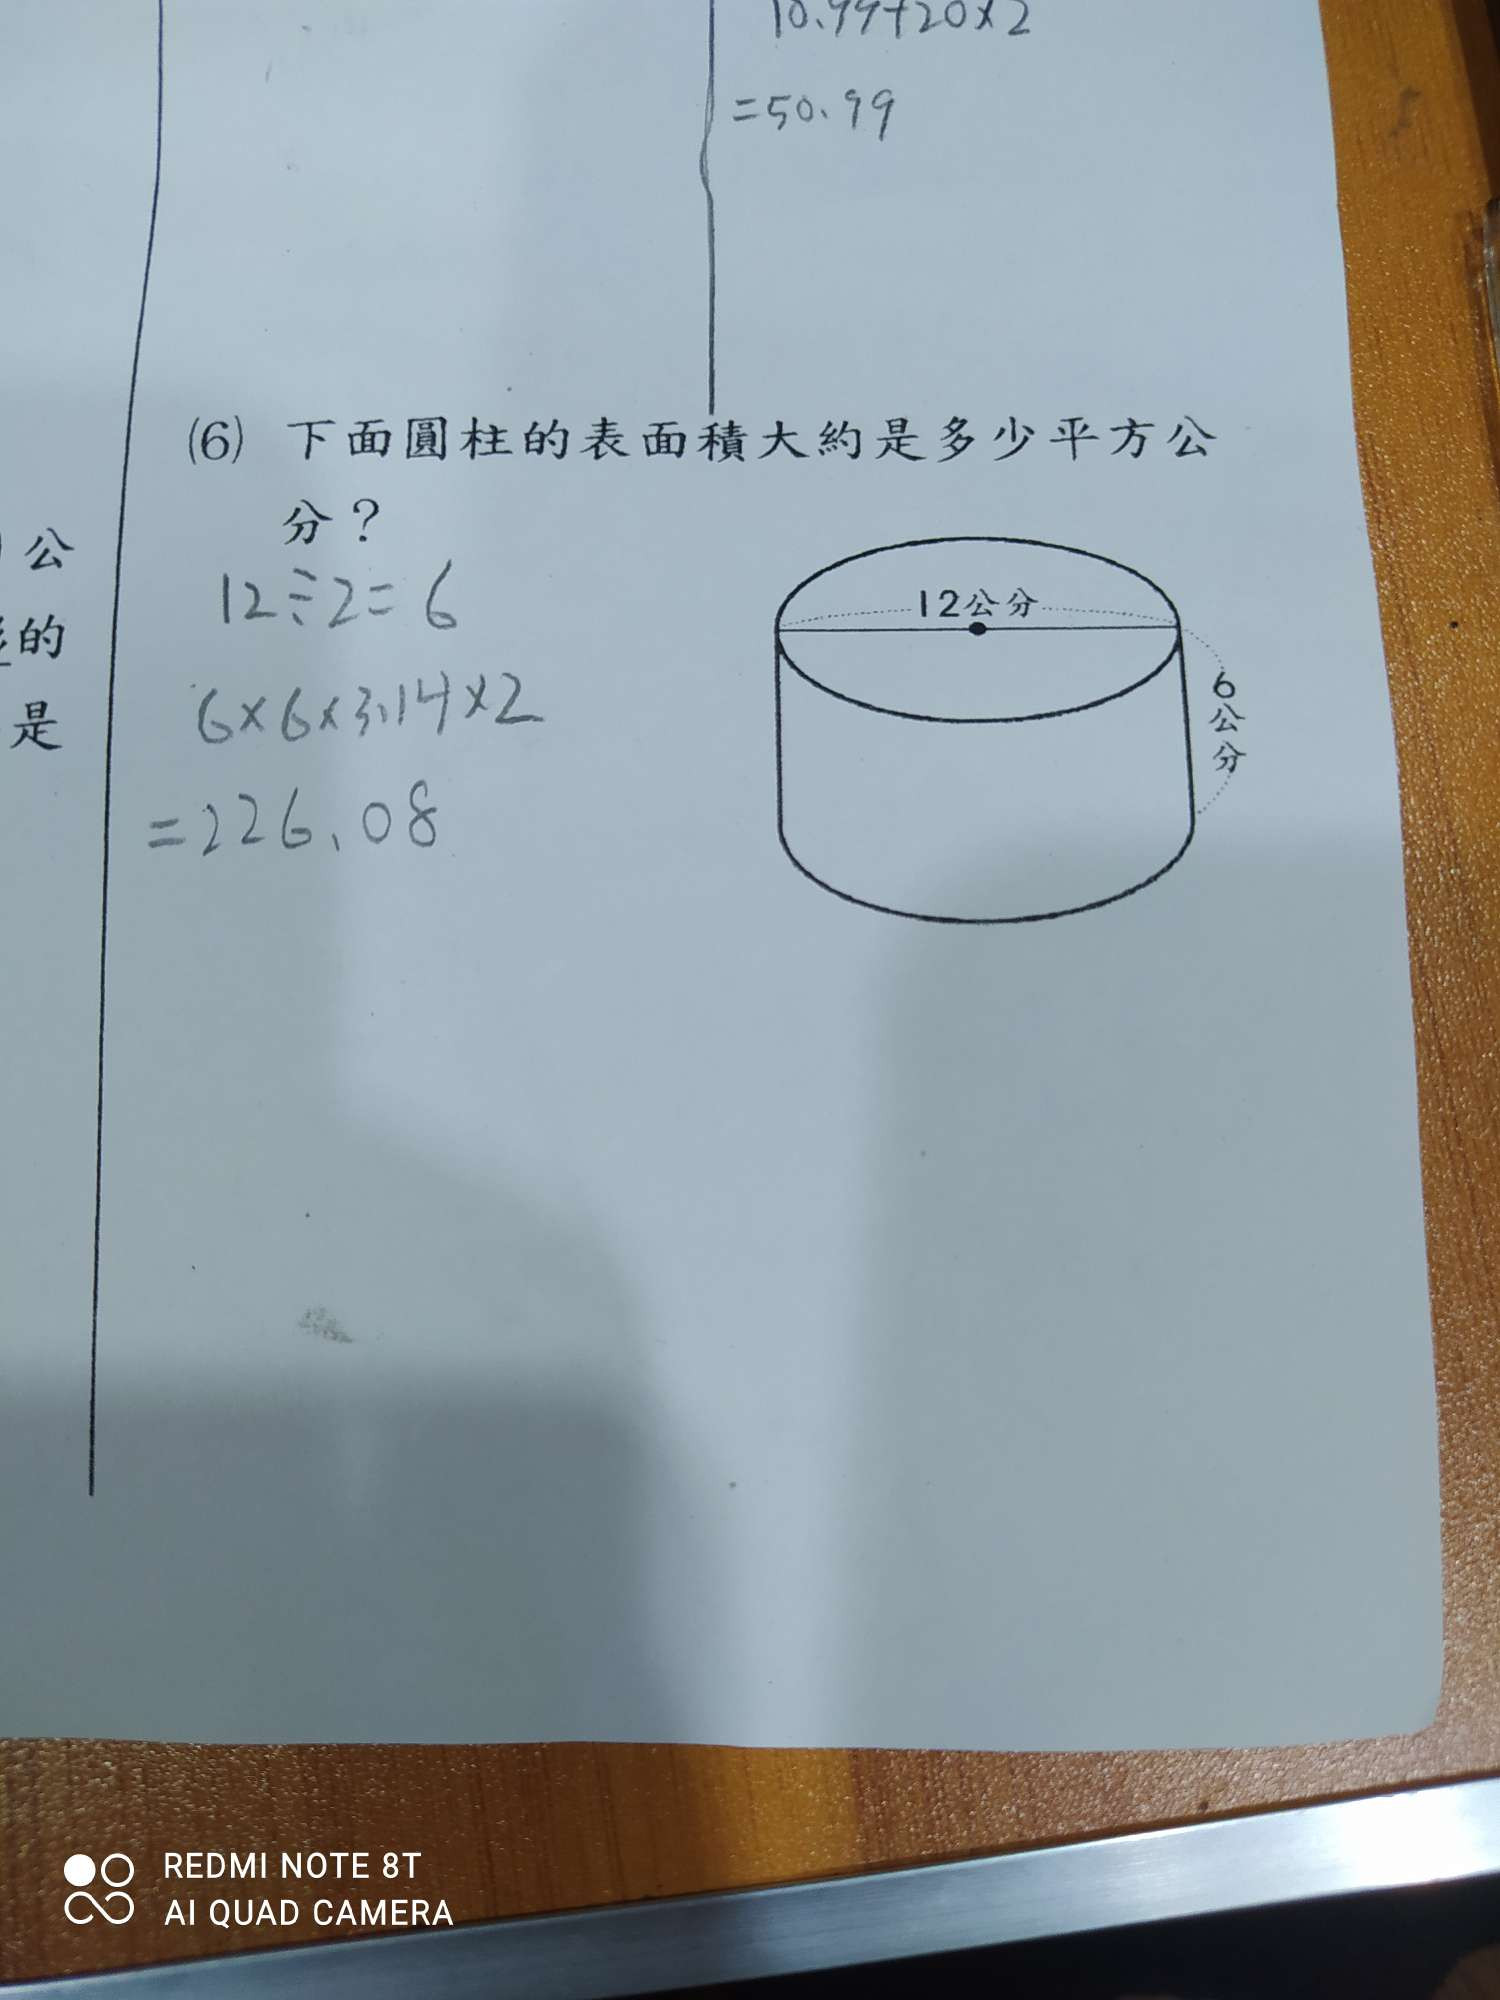 10.99+20×2
=50.99
(6) 下面圓柱的表面積大約是多少平方公
分？
12÷2=6
6×6×3.14×2
=226.08
12公分
6公分
公
的
是
REDMI NOTE 8T
AI QUAD CAMERA